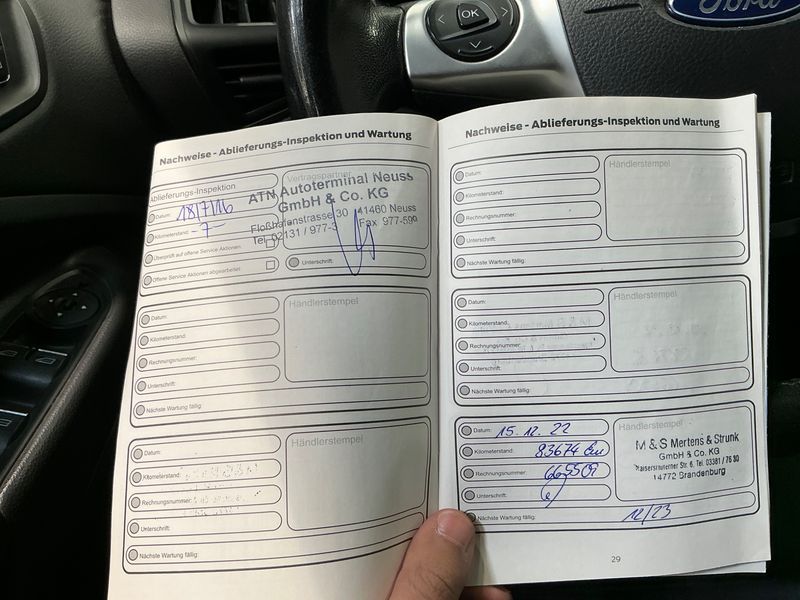 OK
Ford
Nachweise - Ablieferungs-Inspektion und Wartung
Ablieferungs-Inspektion
Datum: 18/7/16
Kilometerstand: -7-
Überprüft auf offene Service Aktionen:
Offene Service Aktionen abgearbeitet:
Vertragspartner
ATN Autoterminal Neuss
GmbH & Co. KG
Floßhafenstrasse 30 41460 Neuss
Tel. 02131 / 977-3 Fax 977-590
Unterschrift:
Datum:
Kilometerstand:
Rechnungsnummer:
Unterschrift:
Nächste Wartung fällig:
Händlerstempel
Datum:
Kilometerstand:
Rechnungsnummer:
Unterschrift:
Nächste Wartung fällig:
Händlerstempel
Nachweise - Ablieferungs-Inspektion und Wartung
Datum:
Kilometerstand:
Rechnungsnummer:
Unterschrift:
Nächste Wartung fällig:
Händlerstempel
Datum:
Kilometerstand:
Rechnungsnummer:
Unterschrift:
Nächste Wartung fällig:
Händlerstempel
Datum: 15.12.22
Kilometerstand: 83674 km
Rechnungsnummer:
Unterschrift:
Nächste Wartung fällig: 12/23
Händlerstempel
M & S Mertens & Strunk
GmbH & Co. KG
Kaiserslauterner Str. 6, Tel. 03381 / 76 30
14772 Brandenburg
29